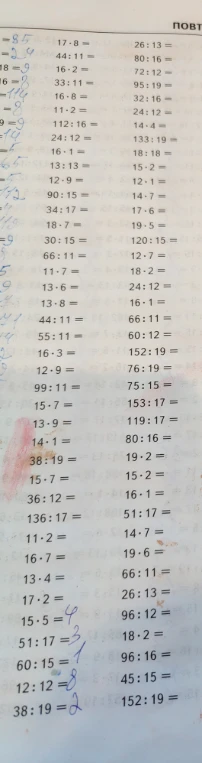 ПОВТ
17·8=
44:11=
16·2=
33:11=
16·8=
11·2=
112:16=
24:12=
16·1=
13:13=
12·9=
90:15=
34:17=
18·7=
30:15=
66:11=
11·7=
13·6=
13·8=
44:11=
55:11=
16·3=
12·9=
99:11=
15·7=
13·9=
14·1=
38:19=
15·7=
36:12=
136:17=
11·2=
16·7=
13·4=
17·2=
15·5=4
51:17=3
60:15=1
12:12=8
38:19=2
26:13=
80:16=
72:12=
95:19=
32:16=
24:12=
14·4=
133:19=
18:18=
15·2=
12·1=
14·7=
17·6=
19·5=
120:15=
12·7=
18·2=
24:12=
16·1=
66:11=
60:12=
152:19=
76:19=
75:15=
153:17=
119:17=
80:16=
19·2=
15·2=
16·1=
51:17=
14·7=
19·6=
66:11=
26:13=
96:12=
18·2=
96:16=
45:15=
152:19=